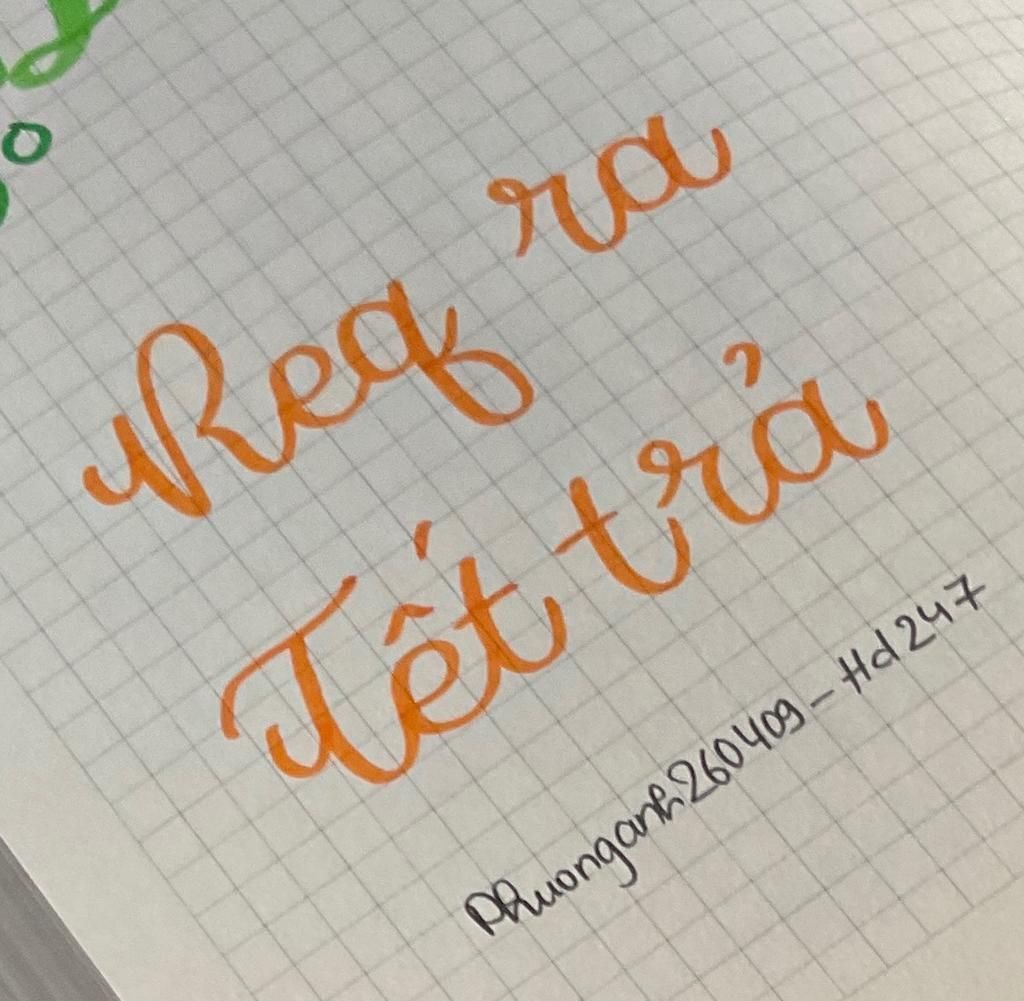 Req ra
Tết trả
Phuonganh260409 - Hd247